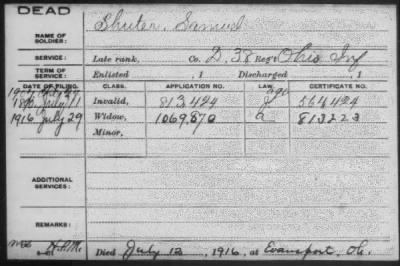 DEAD
NAME OF SOLDIER: Shuter, Samuel
SERVICE: Late rank, Co. D, 38 Reg't Ohio Inf
TERM OF SERVICE: Enlisted , 1 Discharged , 1
DATE OF FILING. CLASS. APPLICATION NO. LAW. CERTIFICATE NO.
July 11 Invalid, 813,424 564424
1916 July 29 Widow, 1069,870 813223
Minor,
ADDITIONAL SERVICES:
REMARKS:
Died July 12, 1916, at Evansport, Oh.